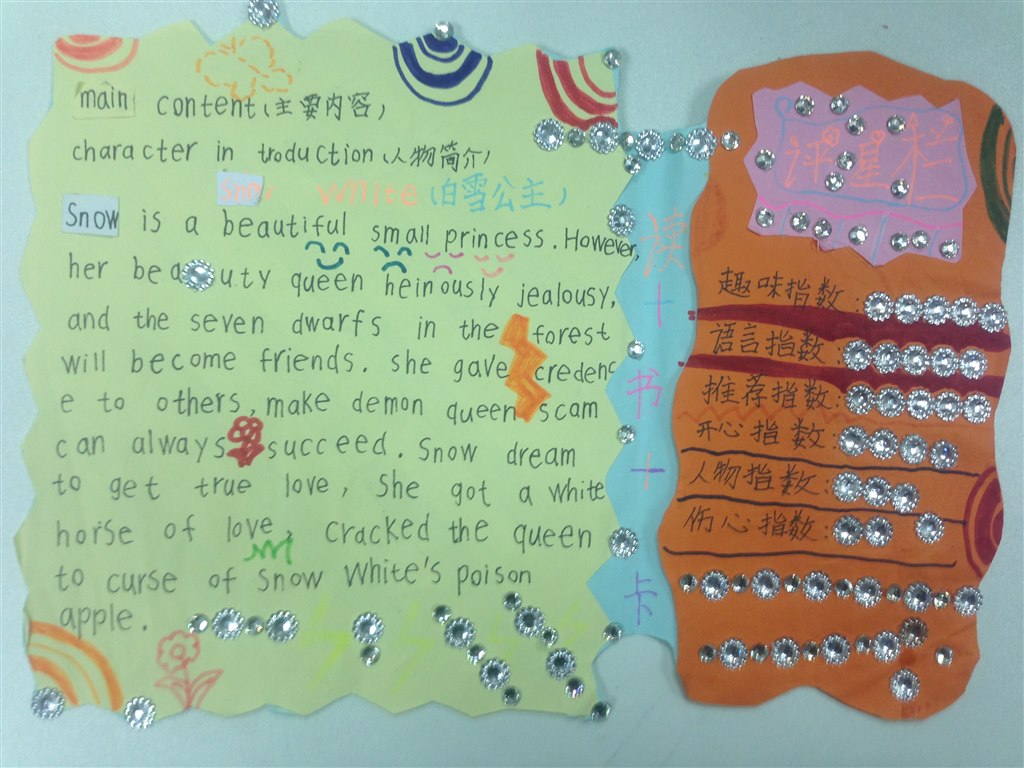 main content (主要内容)
character in troduction (人物简介)
Snow White (白雪公主)
Snow is a beautiful small princess. However,
her beauty queen heinously jealousy,
and the seven dwarfs in the forest
will become friends. she gave credenc
e to others, make demon queen scam
can always succeed. Snow dream
to get true love, She got a white
horse of love, cracked the queen
to curse of Snow White's poison
apple.
读
书
卡
评星栏
趣味指数:
语言指数:
推荐指数:
开心指数:
人物指数:
伤心指数: